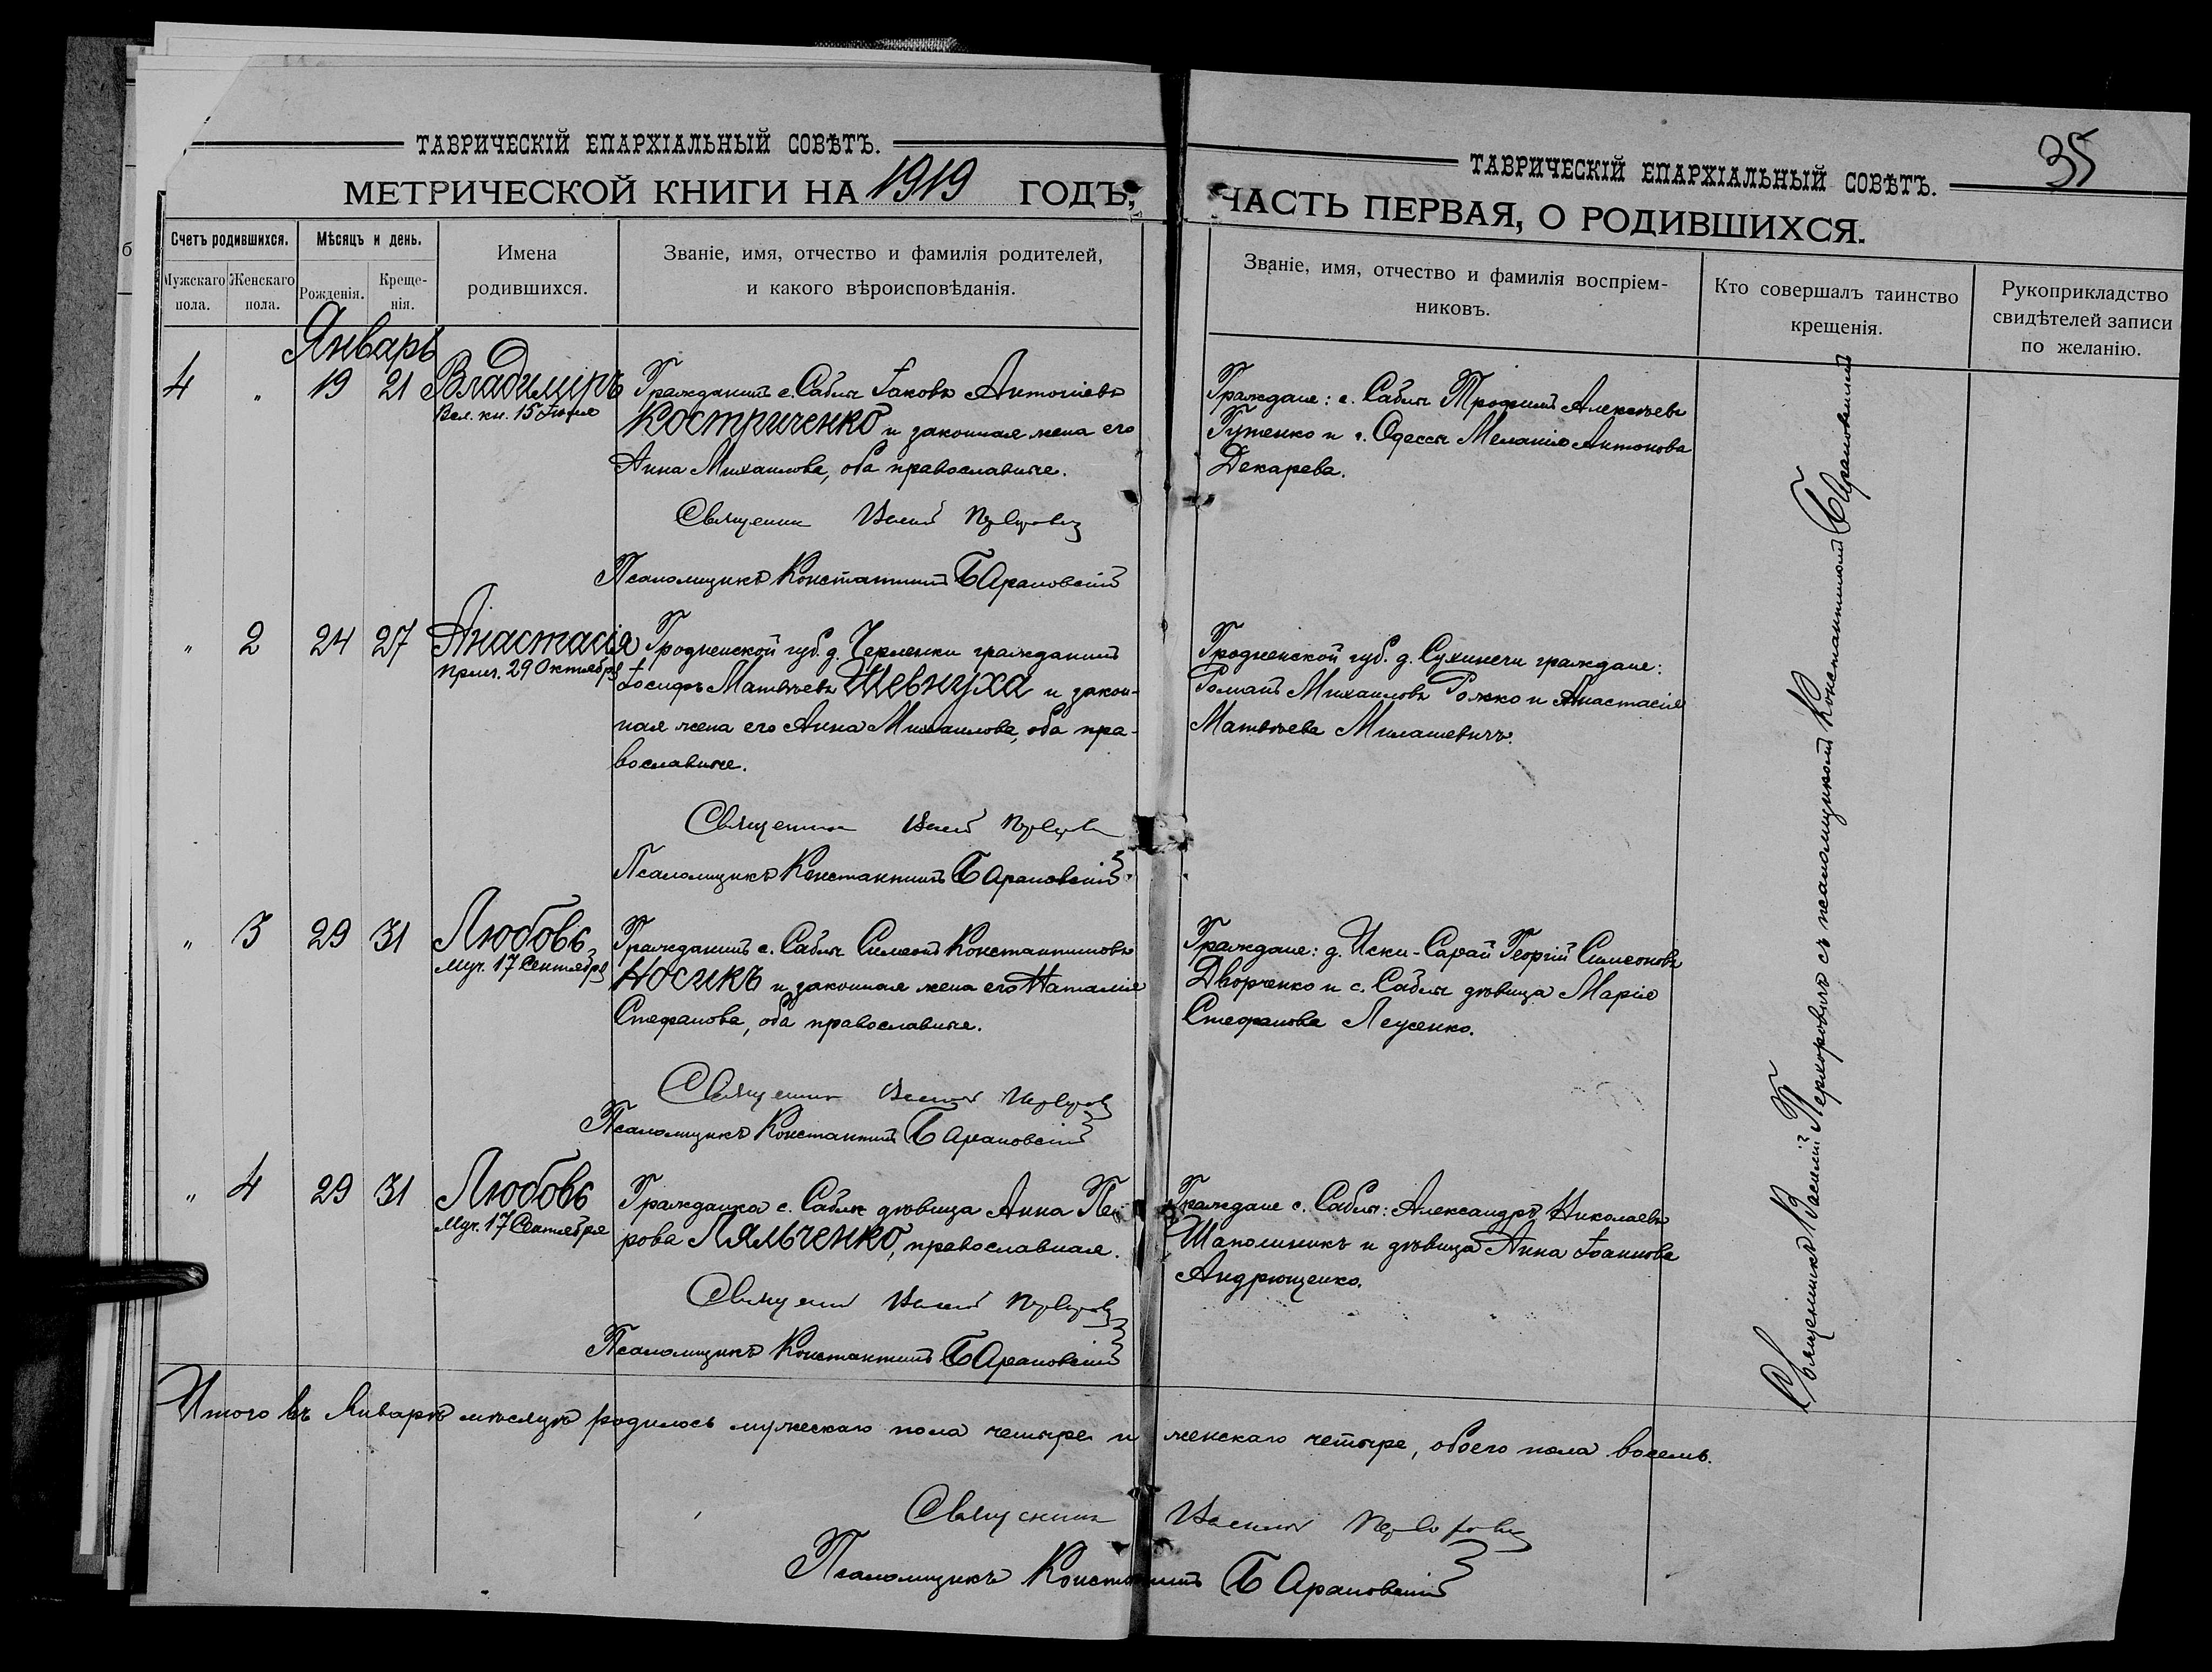 ТАВРИЧЕСКІЙ ЕПАРХІАЛЬНЫЙ СОВѢТЪ.
МЕТРИЧЕСКОЙ КНИГИ НА 1919 ГОДЪ,
Счетъ родившихся.
Мужскаго пола.
Женскаго пола.
Мѣсяцъ и день.
Рожденія.
Креще-
нія.
Имена
родившихся.
Званіе, имя, отчество и фамилія родителей,
и какого вѣроисповѣданія.
ТАВРИЧЕСКІЙ ЕПАРХІАЛЬНЫЙ СОВѢТЪ.
35
ЧАСТЬ ПЕРВАЯ, О РОДИВШИХСЯ.
Званіе, имя, отчество и фамилія воспріем-
никовъ.
Кто совершалъ таинство
крещенія.
Рукоприкладство
свидѣтелей записи
по желанію.
Январь
4 " 19 21 Владиміръ
Вел. кн. 15 Іюля
Гражданинъ с. Саблы Іаковъ Антоніевъ
Костриченко и законная жена его
Анна Михаилова, оба православные.
Священник Василій
Псаломщикъ Константинъ Барановскій
Граждане: с. Саблы Трофимъ Алексѣевъ
Гутенко и г. Одессы Меланія Антонова
Декарева.
" 2 24 27 Анастасія
прмч. 29 Октября
Гродненской губ. д. Черленки гражданинъ
Іосифъ Матвѣевъ Шевнуха и закон-
ная жена его Анна Михаилова, оба пра-
вославные.
Священник Василій
Псаломщикъ Константинъ Барановскій
Гродненской губ. д. Сухиничи граждане:
Романъ Михаиловъ Рожко и Анастасія
Матвѣева Милашевичъ.
" 3 29 31 Любовь
Муч. 17 Сентября
Гражданинъ с. Саблы Симеонъ Константиновъ
Носикъ и законная жена его Наталія
Стефанова, оба православные.
Священник Василій
Псаломщикъ Константинъ Барановскій
Граждане: д. Иски-Сарай Георгій Симеоновъ
Дворченко и с. Саблы дѣвица Марія
Стефанова Леусенко.
" 4 29 31 Любовь
Муч. 17 Сентября
Гражданка с. Саблы дѣвица Анна Пе-
рова Ляльченко, православная.
Священник Василій
Псаломщикъ Константинъ Барановскій
Граждане с. Саблы: Александръ Николаевъ
Шаполиникъ и дѣвица Анна Іоаннова
Андрющенко.
Священникъ Василій съ псаломщикомъ Константиномъ Барановскимъ
Итого въ Январѣ мѣсяцѣ родилось мужескаго пола четыре и женскаго четыре, обоего пола восемь.
Священник Василій
Псаломщикъ Константинъ Барановскій